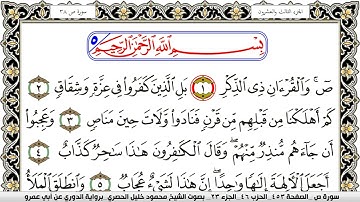 الجزء الثالث والعشرون
سورة ص ٣٨
بِسْمِ اللَّهِ الرَّحْمَٰنِ الرَّحِيمِ
صٓ ۚ وَالْقُرْءَانِ ذِى الذِّكْرِ ١ بَلِ الَّذِينَ كَفَرُوا فِى عِزَّةٍ وَشِقَاقٍ ٢
كَمْ أَهْلَكْنَا مِن قَبْلِهِم مِّن قَرْنٍ فَنَادَوا وَّلَاتَ حِينَ مَنَاصٍ ٣ وَعَجِبُوا
أَن جَاءَهُم مُّنذِرٌ مِّنْهُمْ ۖ وَقَالَ الْكَٰفِرُونَ هَٰذَا سَٰحِرٌ كَذَّابٌ ٤
أَجَعَلَ الْآلِهَةَ إِلَٰهًا وَٰحِدًا ۖ إِنَّ هَٰذَا لَشَىْءٌ عُجَابٌ ٥ وَانطَلَقَ الْمَلَأُ
سورة ص . الصفحة ٤٥٣ . الحزب ٤٦ . الجزء ٢٣ . بصوت الشيخ محمود خليل الحصري . برواية الدوري عن أبي عمرو